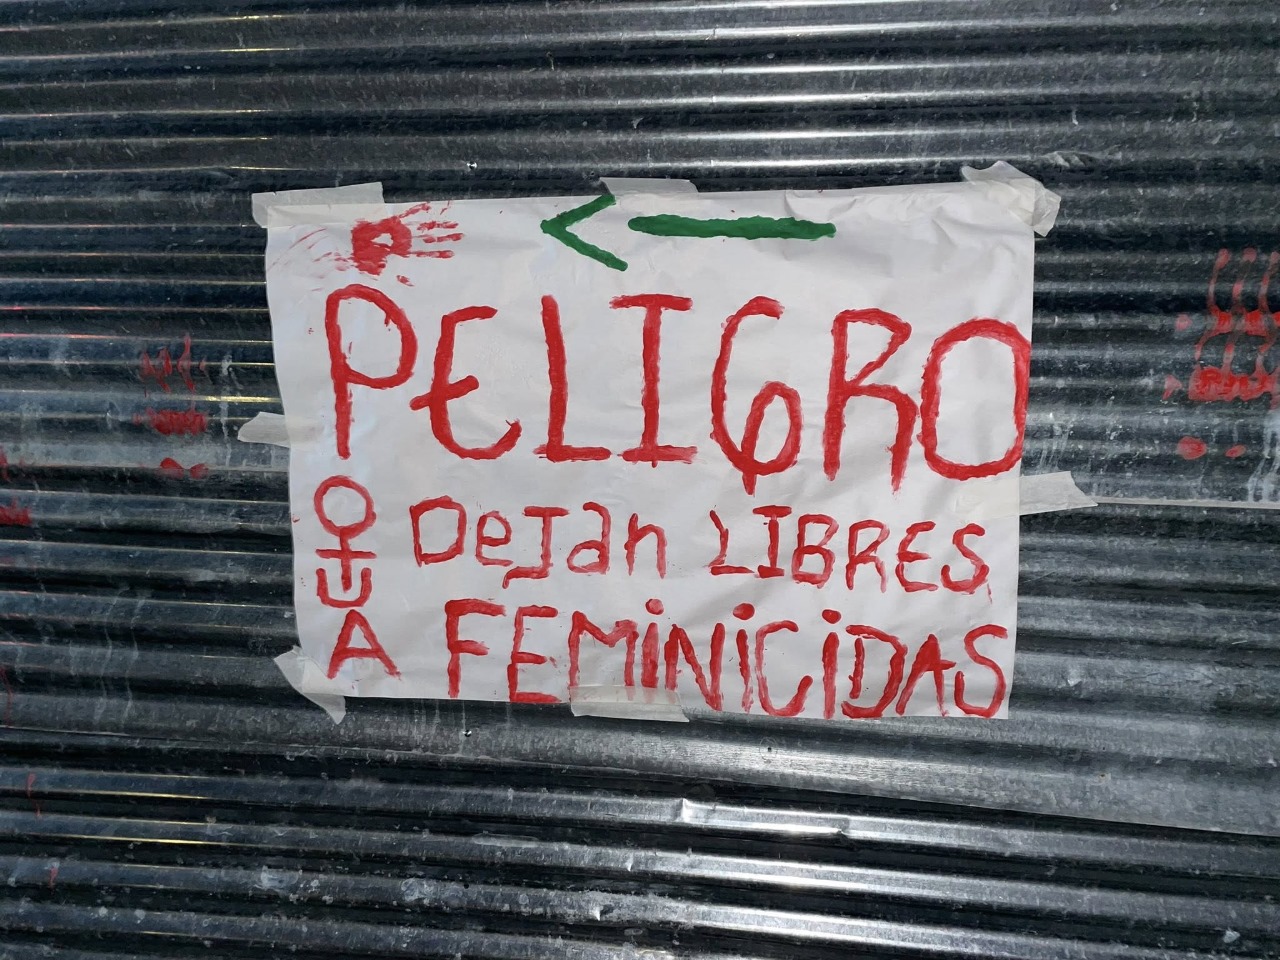 PELIGRO
DEJan LIBRES
A FEMINICIDAS